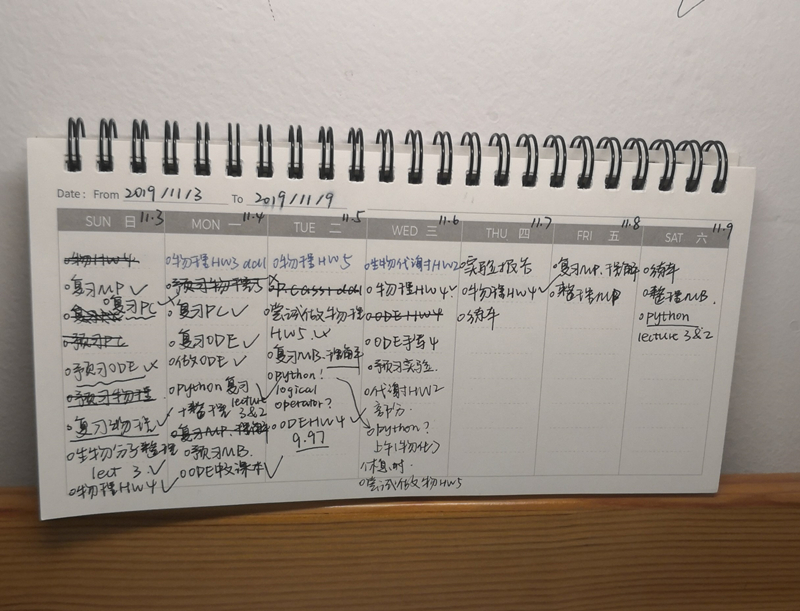 Date: From 2019/11/3 To 2019/11/9
SUN 日 11.3
MON 一 11.4
TUE 二 11.5
WED 三 11.6
THU 四 11.7
FRI 五 11.8
SAT 六 11.9
物HW4.
复习MP ✓
复习PC
预习PC
预习ODE
预习物理
复习物理 ✓
生物分子整理
lect 3. ✓
物理HW4 ✓
物理HW3 ddl
预习物理5
复习PC ✓
复习ODE ✓
做ODE ✓
python 复习
+整理 lecture
3&2
复习MP.
预习MB.
ODE 课本 ✓
物理HW5
PC ddl
尝试做物理
HW5.
复习MB.
python!
logical
operator?
ODEHW4 ✓
9.97
生物代谢HW2
物理HW4 ✓
ODE HW4
ODE 4
预习实验.
代谢HW2
部分.
python?
上午(物化)
休息时.
尝试做物HW5
实验报告
物理HW4 ✓
练车
复习MP.
整理MP
练车
整理MB.
python
lecture 3&2